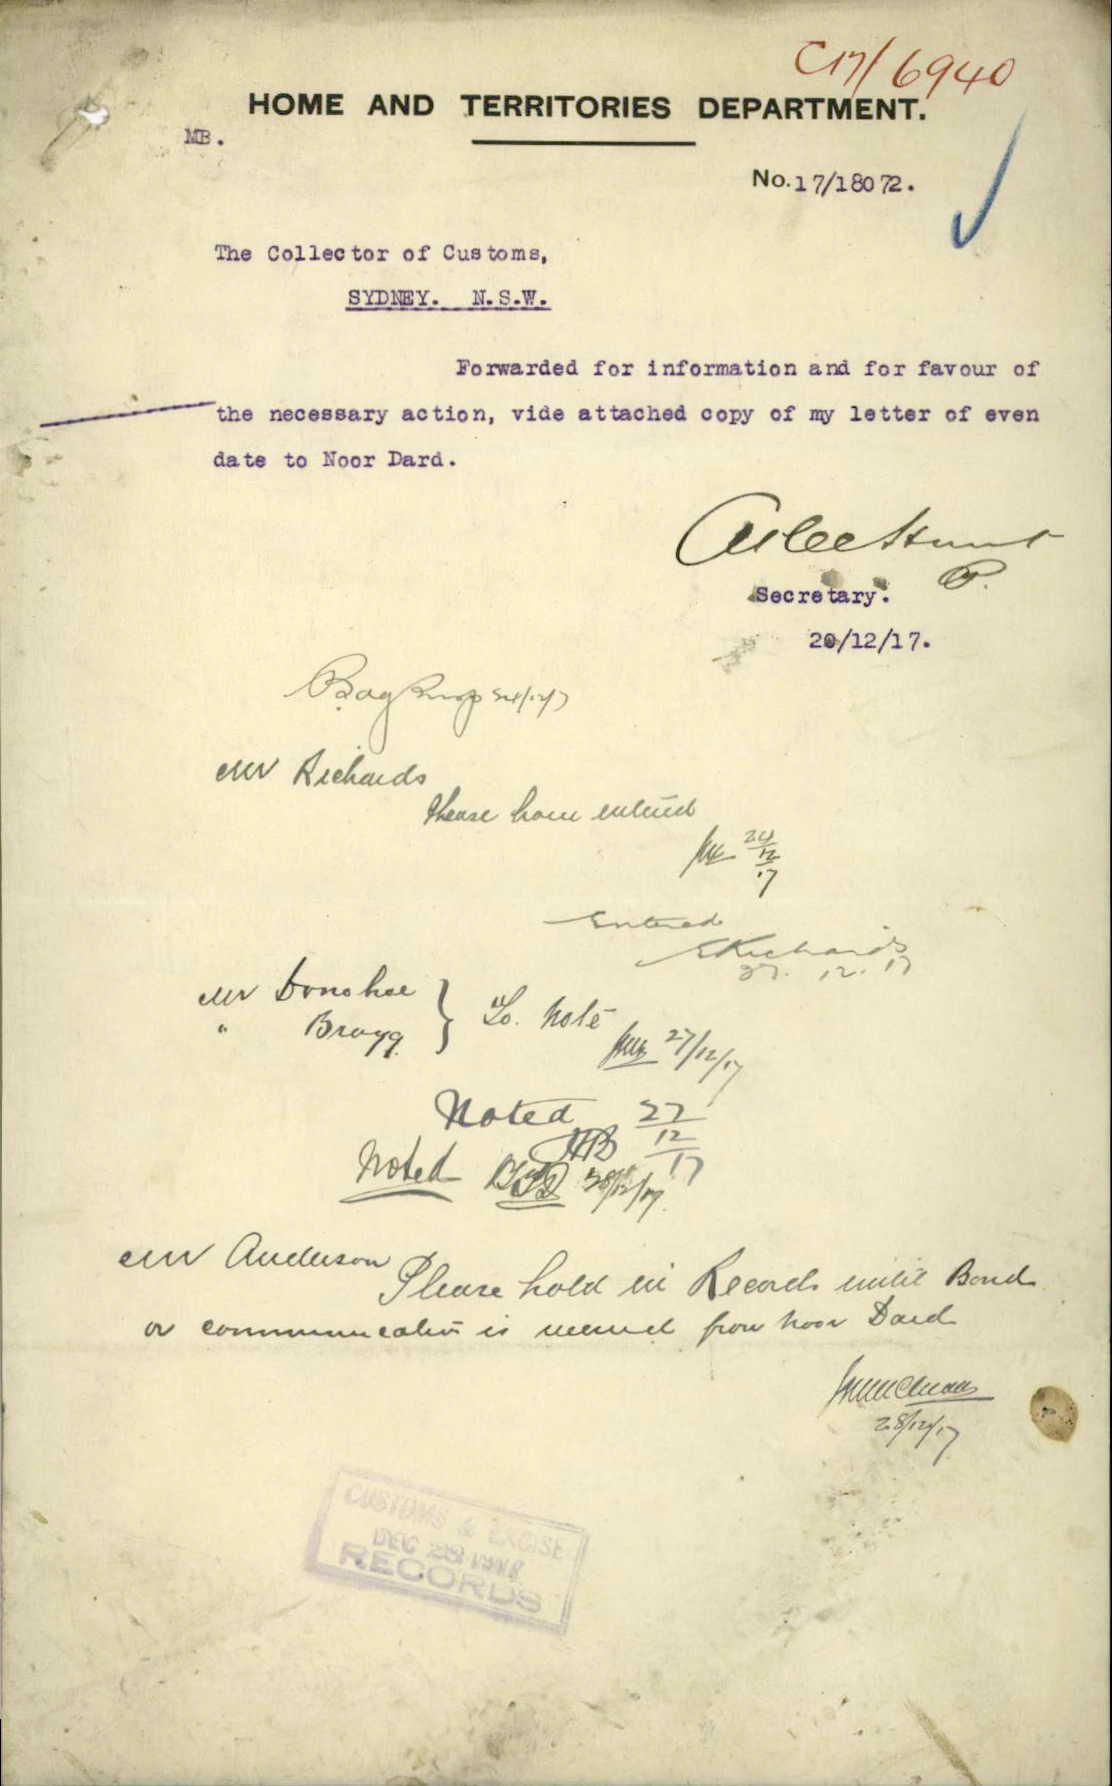 C17/6940
HOME AND TERRITORIES DEPARTMENT.
MB.
No. 17/18072.
The Collector of Customs,
SYDNEY. N.S.W.
Forwarded for information and for favour of
the necessary action, vide attached copy of my letter of even
date to Noor Dard.
Atlee Hunt
Secretary.
20/12/17.
24/12/17
Mr Richards
Please have entered
24/12/17
Entered
ERichards
27.12.17
Mr Donohoe
" Bragg
To note
27/12/17
Noted 27/12/17
Noted 28/12/17
Mr Anderson
Please hold in Records until Bond
or communication is received from Noor Dard
28/12/17
CUSTOMS & EXCISE
DEC 28 1917
RECORDS